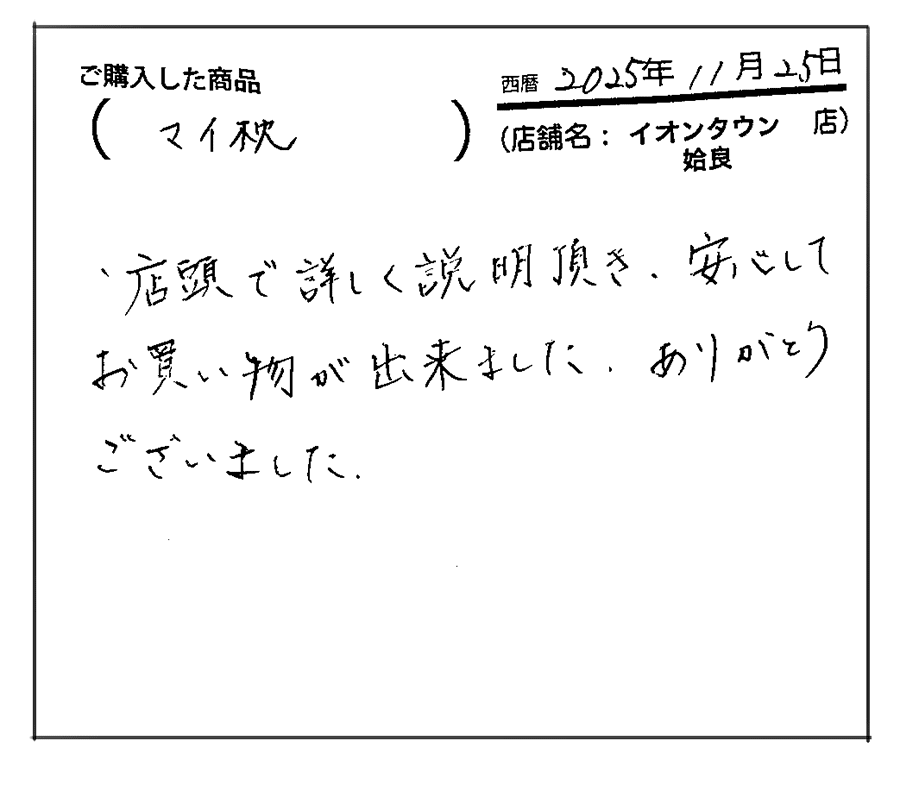 ご購入した商品
(マイ枕)
西暦 2025年11月25日
(店舗名：イオンタウン 店)
姶良
店頭で詳しく説明頂き、安心して
お買い物が出来ました。ありがとう
ございました。